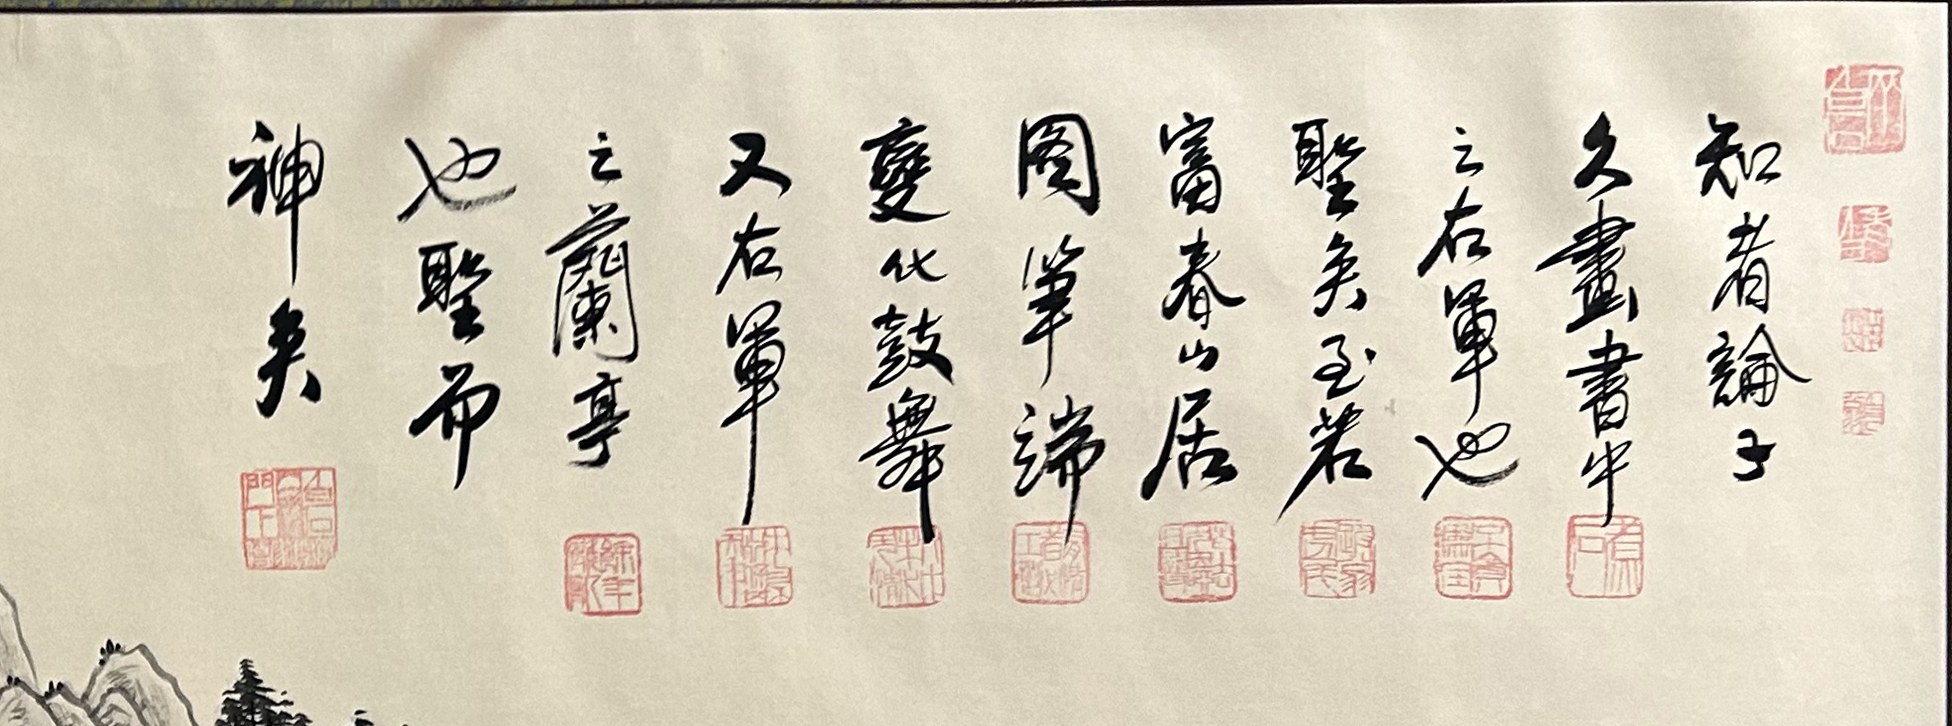 知者論子
久畫書中
之右軍也
聖矣至若
富春山居
图筆端
變化鼓舞
又右軍
之蘭亭
也聖而
神矣